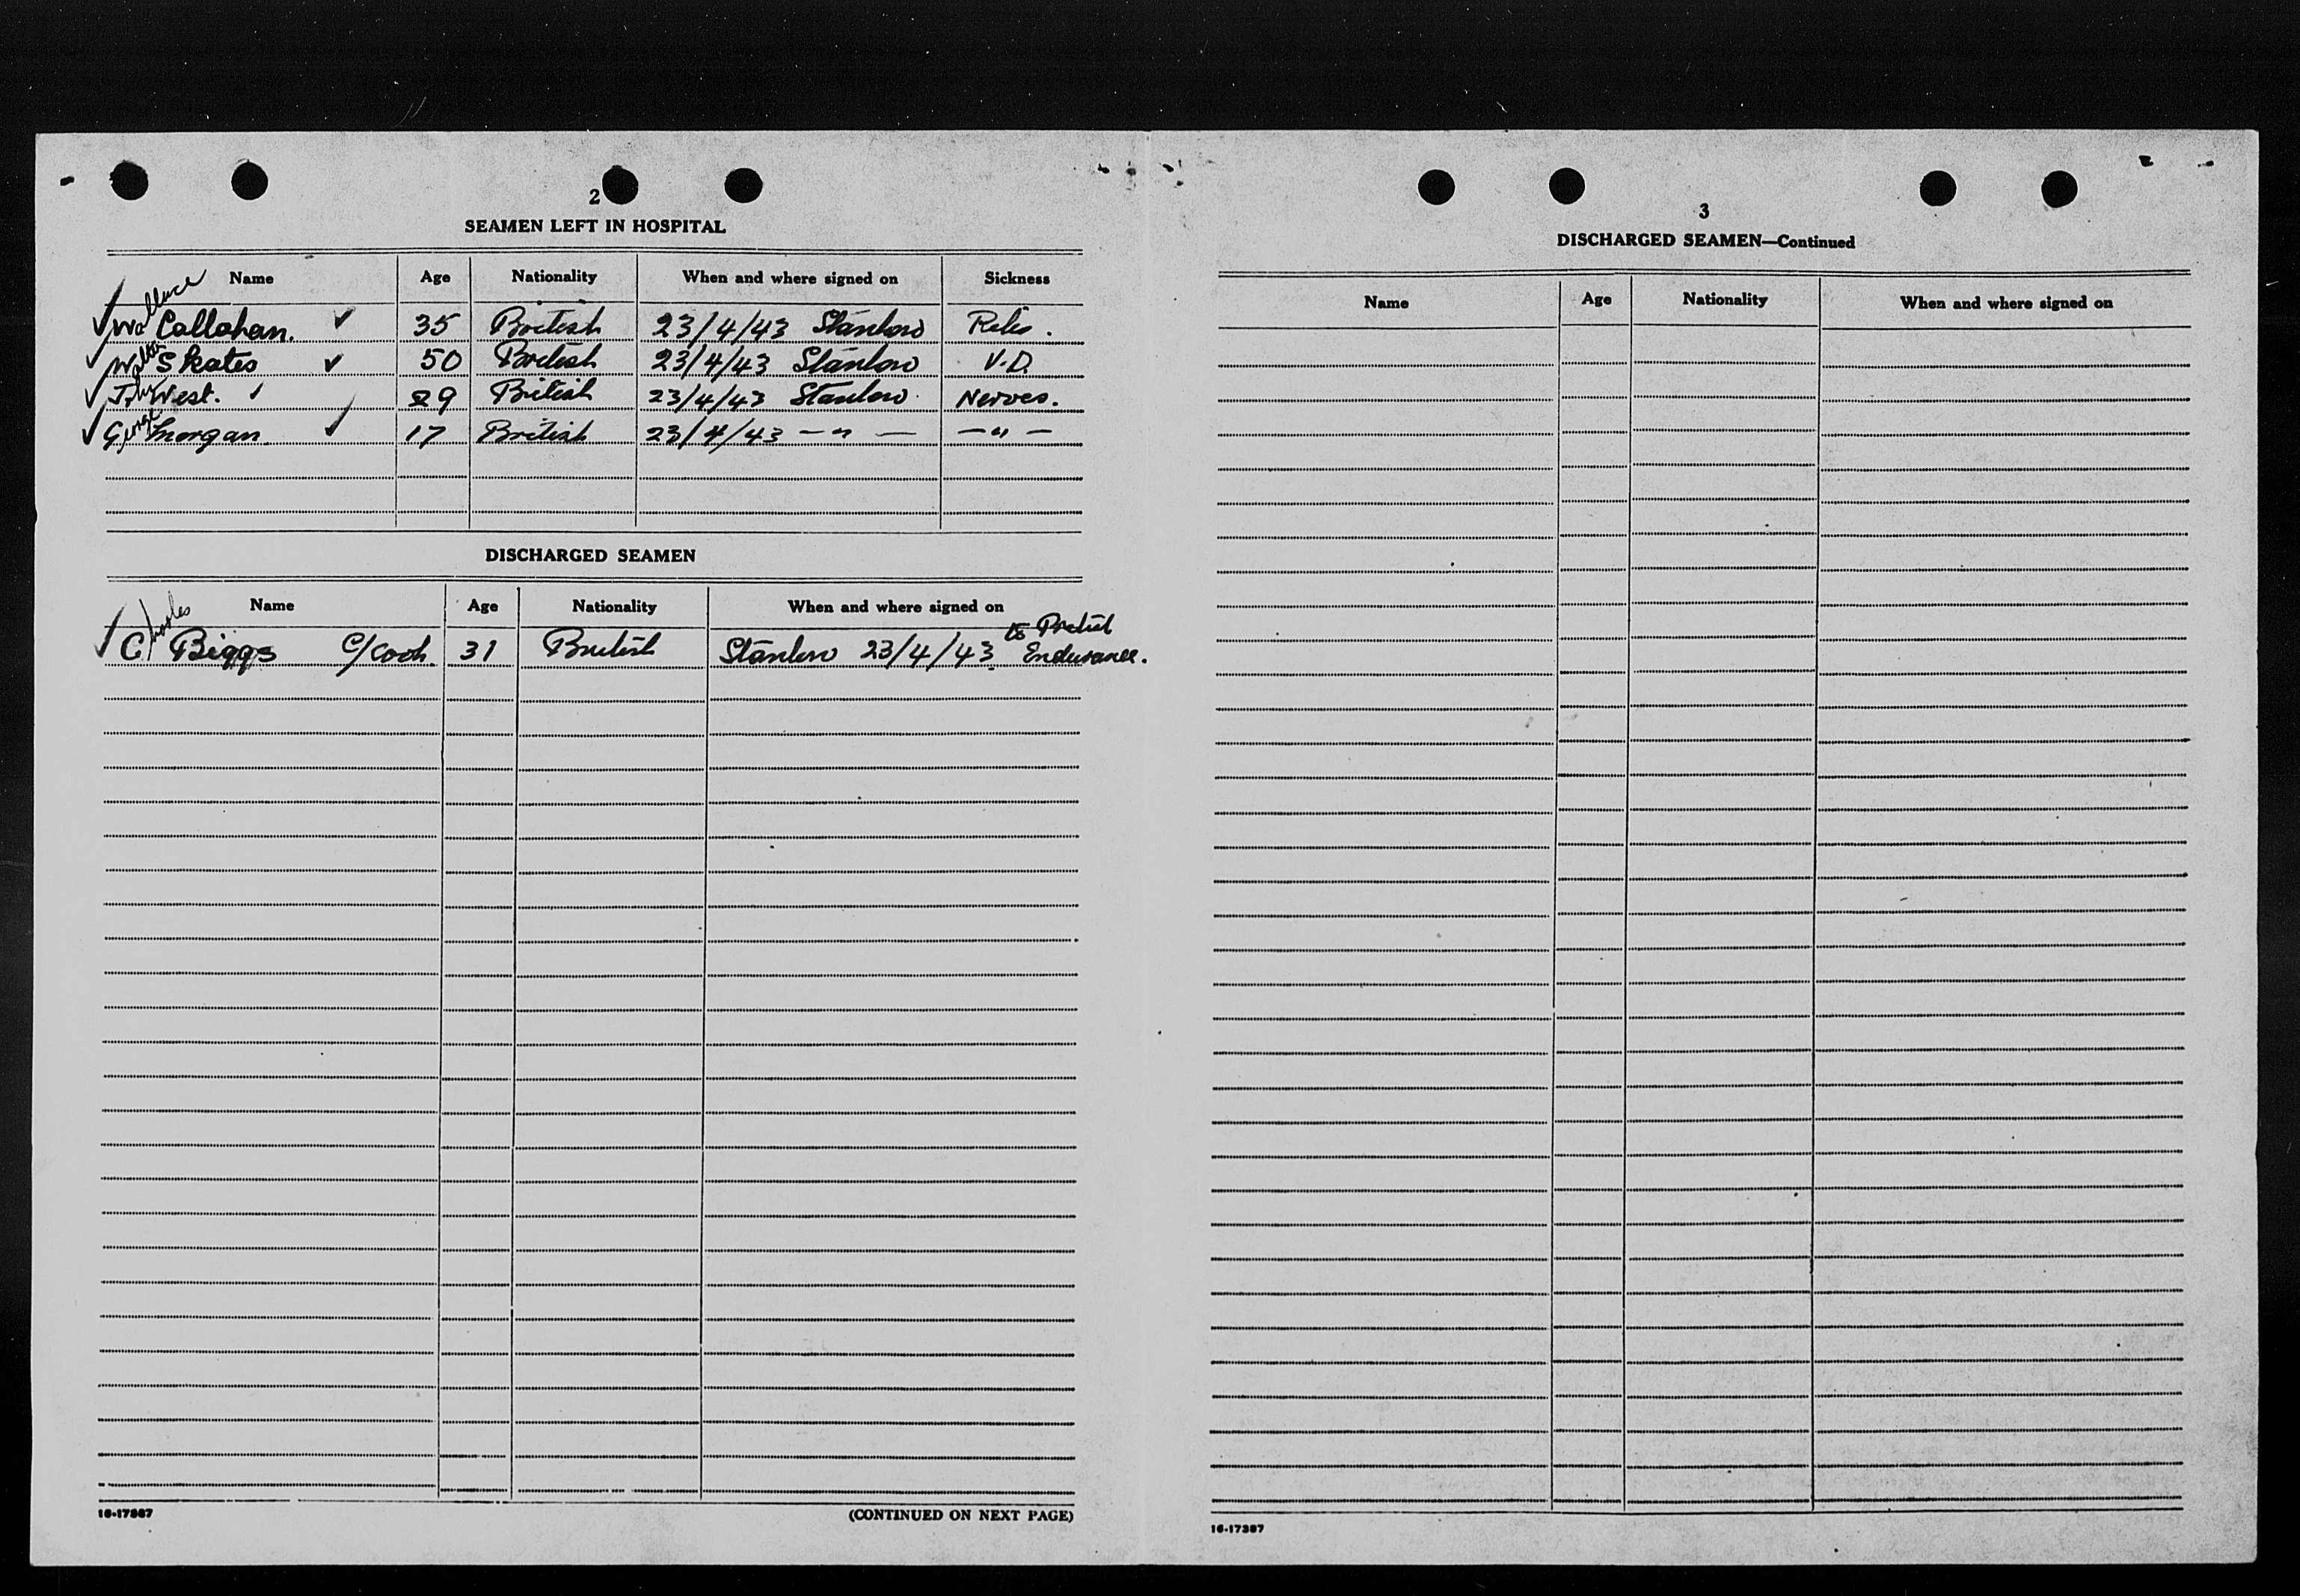 2
SEAMEN LEFT IN HOSPITAL
Name Age Nationality When and where signed on Sickness
Wallace Callahan. 35 British 23/4/43 Stanlow
Walter Skates 50 British 23/4/43 Stanlow V.D.
John West. 29 British 23/4/43 Stanlow Nerves.
George Morgan 17 British 23/4/43 — " — — " —
DISCHARGED SEAMEN
Name Age Nationality When and where signed on
Charles Biggs C/Cook. 31 British Stanlow 23/4/43 to British Endurance.
16-17387
(CONTINUED ON NEXT PAGE)
3
DISCHARGED SEAMEN—Continued
Name Age Nationality When and where signed on
16-17387